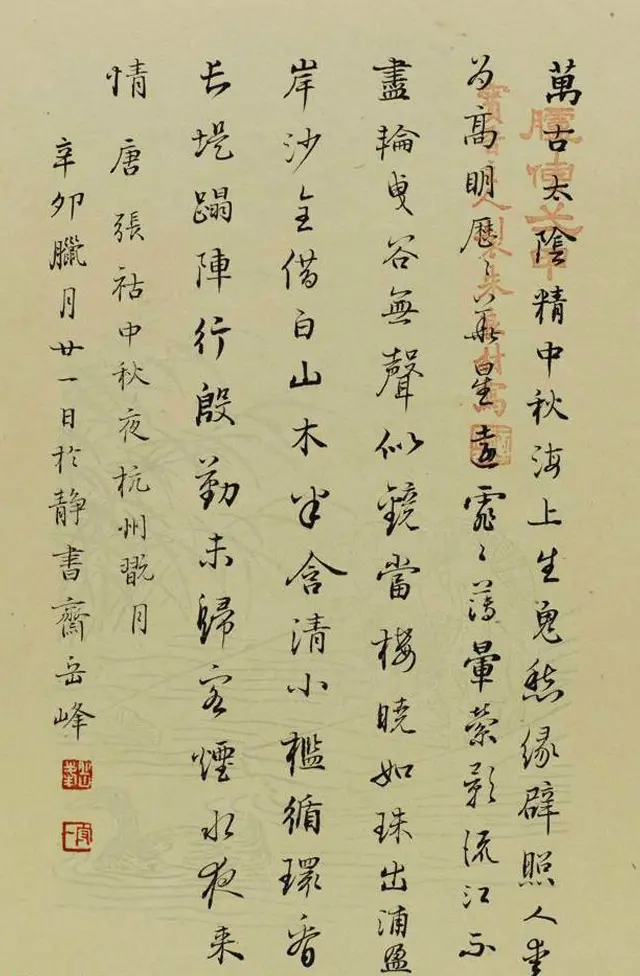 萬古太陰精中秋海上生鬼愁緣辟照人愛
为高明歷〻華星遠霏〻薄暈縈影流江不
盡輪曳谷無聲似鏡當樓曉如珠出浦盈
岸沙全借白山木半含清小檻循環看
长堤蹋陣行殷勤未歸客煙水夜来
情 唐張祜中秋夜杭州翫月
辛卯臘月廿一日於静書齋岳峰